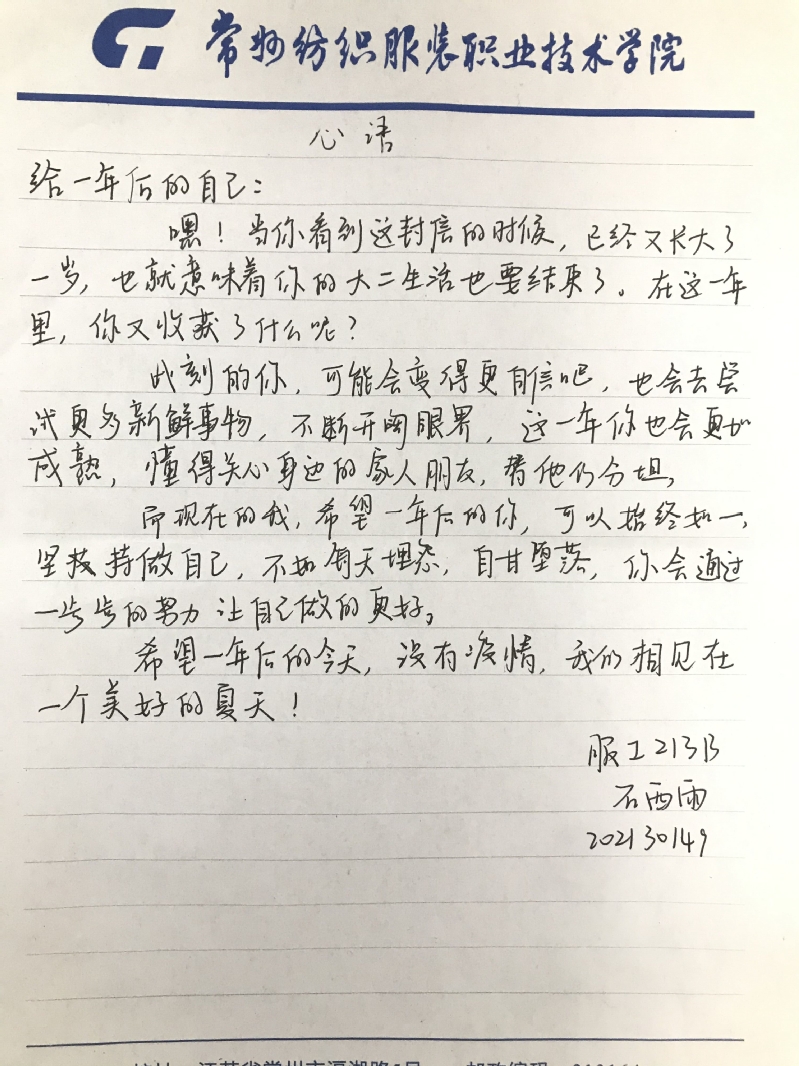 常州纺织服装职业技术学院
心语
给一年后的自己：
嘿！当你看到这封信的时候，已经又长大了
一岁，也就意味着你的大二生活也要结束了。在这一年
里，你又收获了什么呢？
此刻的你，可能会变得更自信吧，也会去尝
试更多新鲜事物，不断开阔眼界，这一年你也会更加
成熟，懂得关心身边的家人朋友，替他们分担。
而现在的我，希望一年后的你，可以始终如一，
坚持做自己，不如每天埋怨，自甘堕落，你会通过
一步步的努力让自己做的更好。
希望一年后的今天，没有疫情，我们相见在
一个美好的夏天！
服工213B
石西雨
202130149